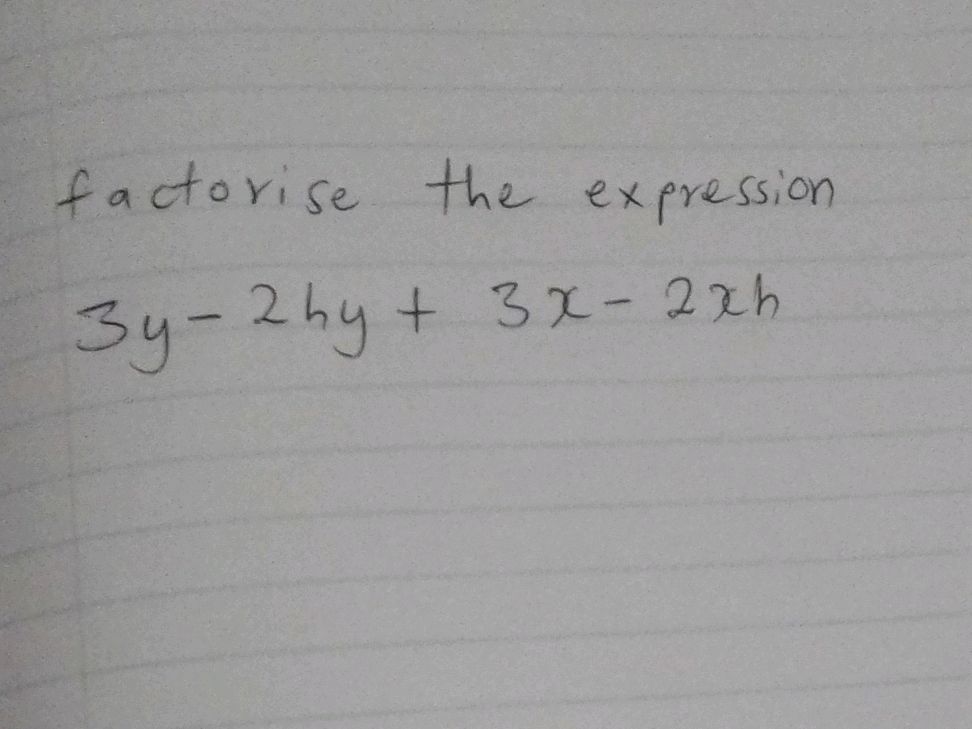 factorise the expression
3y - 2hy + 3x - 2xh